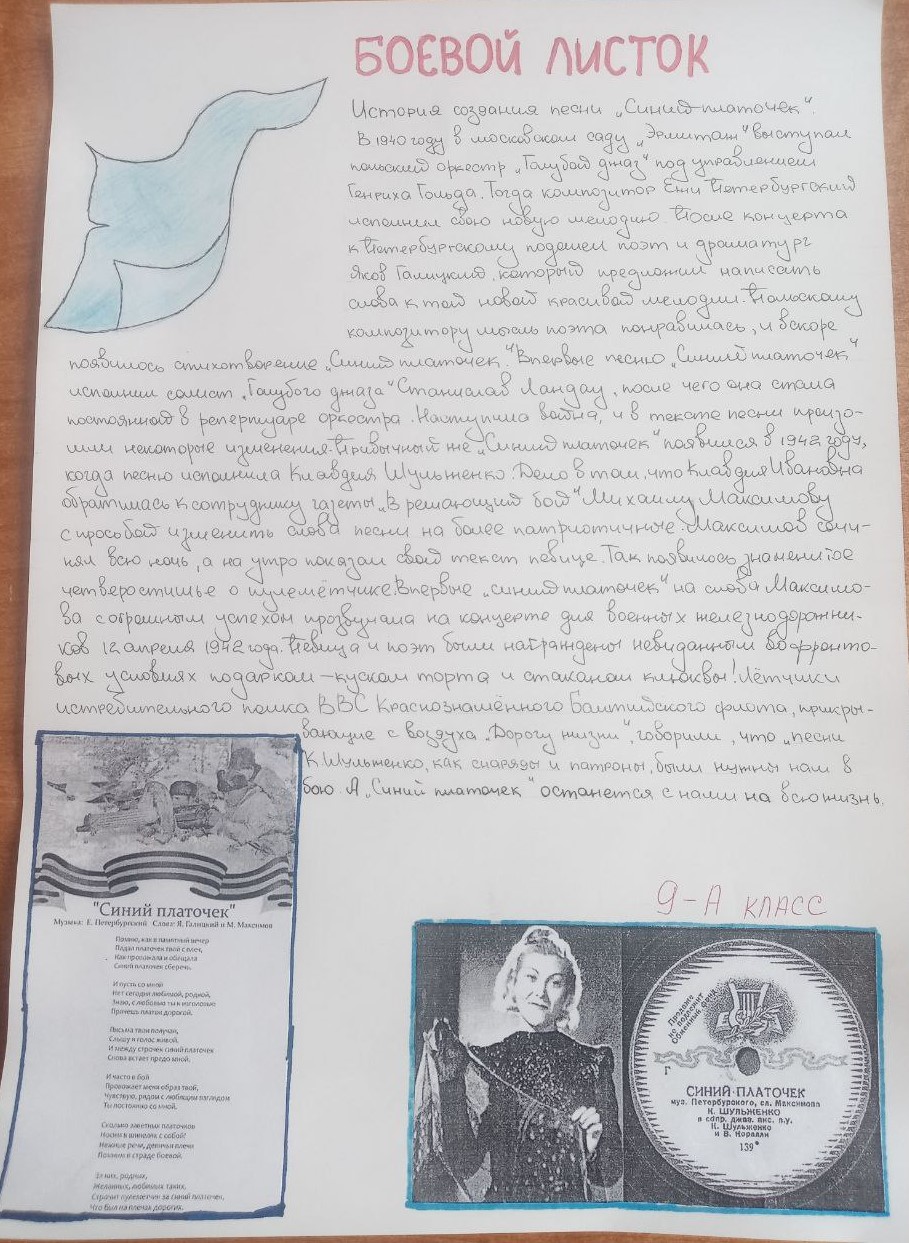 БОЕВОЙ ЛИСТОК
История создания песни „Синий платочек".
В 1940 году в московском саду „Эрмитаж" выступал
польский оркестр „Голубой джаз" под управлением
Генриха Гольда. Тогда композитор Ежи Петербургский
исполнил свою новую мелодию. После концерта
к Петербургскому подошел поэт и драматург
Яков Галицкий, который предложил написать
слова к той новой красивой мелодии. Польскому
композитору мысль поэта понравилась, и вскоре
появилось стихотворение „Синий платочек". Впервые песню „Синий платочек"
исполнил солист „Голубого джаза" Станислав Ландау, после чего она стала
постоянной в репертуаре оркестра. Наступила война, и в тексте песни произо-
шли некоторые изменения. Привычный же „Синий платочек" появился в 1942 году,
когда песню исполнила Клавдия Шульженко. Дело в том, что Клавдия Ивановна
обратилась к сотруднику газеты „В решающий бой" Михаилу Максимову
с просьбой изменить слова песни на более патриотичные. Максимов сочи-
нял всю ночь, а на утро показал свой текст певице. Так появилось знаменитое
четверостишье о пулемётчике. Впервые „синий платочек" на слова Максимо-
ва с огромным успехом прозвучала на концерте для военных железнодорожни-
ков 12 апреля 1942 года. Певица и поэт были награждены невиданным во фронто-
вых условиях подарком – куском торта и стаканом клюквы! Лётчики
истребительного полка ВВС Краснознамённого Балтийского флота, прикры-
вающие с воздуха „Дорогу жизни", говорили, что „песни
К. Шульженко, как снаряды и патроны, были нужны нам в
бою. А „Синий платочек" останется с нами на всю жизнь.
"Синий платочек"
Музыка: Е. Петербургский Слова: Я. Галицкий и М. Максимов
Помню, как в памятный вечер
Падал платочек твой с плеч,
Как провожала и обещала
Синий платочек сберечь.
И пусть со мной
Нет сегодня любимой, родной,
Знаю, с любовью ты к изголовью
Прячешь платок дорогой.
Письма твои получая,
Слышу я голос живой.
И между строчек синий платочек
Снова встает предо мной.
И часто в бой
Провожает меня образ твой,
Чувствую, рядом с любящим взглядом
Ты постоянно со мной.
Сколько заветных платочков
Носим в шинелях с собой!
Нежные речи, девичьи плечи
Помним в страде боевой.
За них, родных,
Желанных, любимых таких,
Строчит пулеметчик за синий платочек,
Что был на плечах дорогих.
9-А КЛАСС
Продаже
не подлежит
Обменный фонд
Г
СИНИЙ ПЛАТОЧЕК
муз. Петербурского, сл. Максимова
К. ШУЛЬЖЕНКО
в сопр. джаз. анс. п.у.
К. Шульженко
и В. Коралли
139*